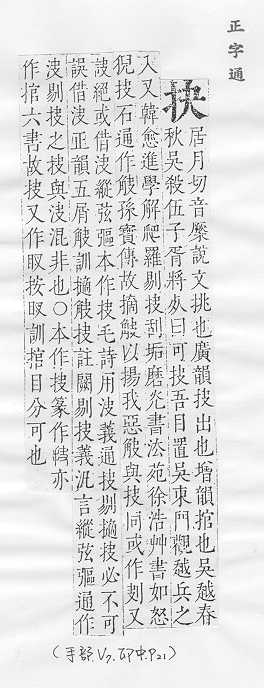 正字通
抉
居月切音厥說文挑也廣韻抉出也增韻捾也吳越春
秋吳殺伍子胥將死曰可抉吾目置吳東門觀越兵之
入又韓愈進學解爬羅剔抉刮垢磨光書法苑徐浩艸書如怒
猊抉石通作觖孫寶傳故摘觖以揚我惡觖與抉同或作刔又
絕或借決縱弦彄本作抉毛詩用決義通抉剔擿抉必不可
誤借決正韻五屑觖訓擿觖抉註闕剔抉義汎言縱弦彄通作
決剔抉之抉與決混非也○本作抉篆作亦
作捾六書故抉又作按訓捾目分可也
(手部.V7.卯中.P21)